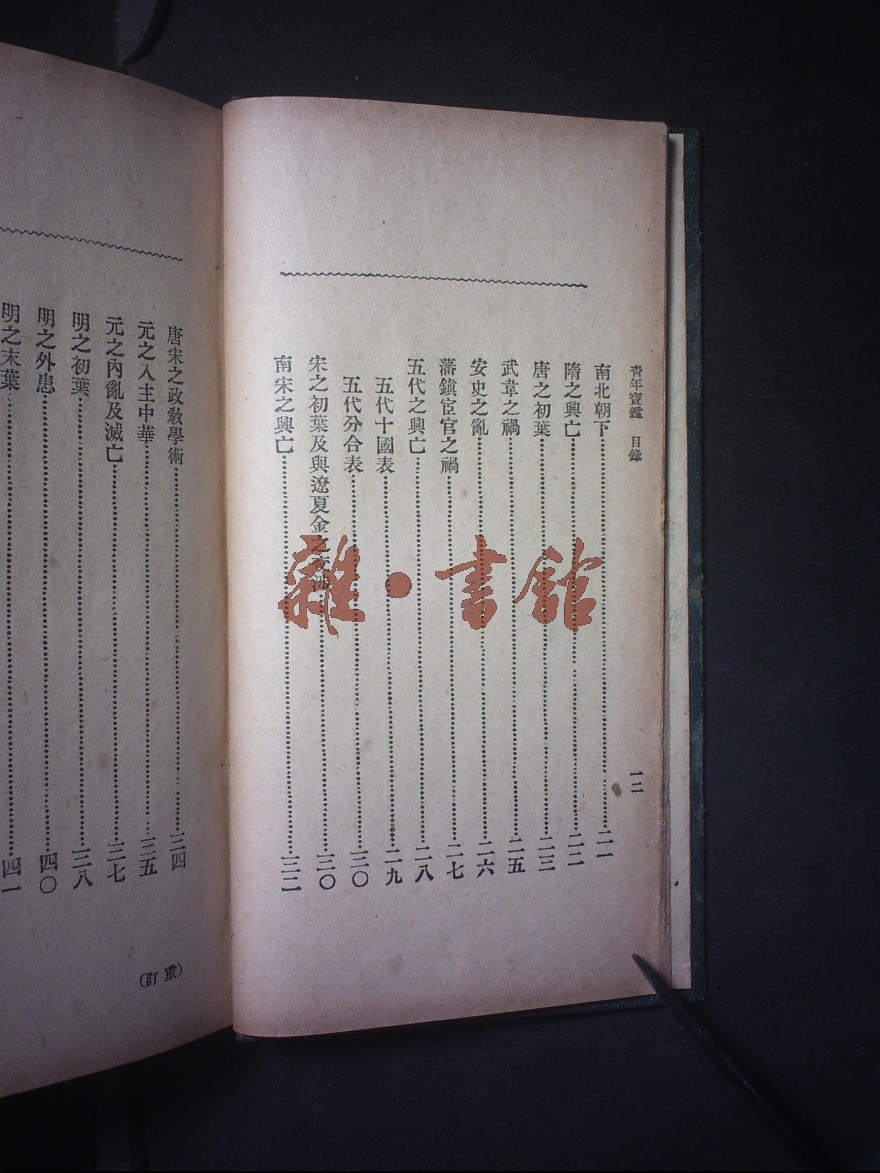 青年寶鑑 目錄 一二
南北朝下……二一
隋之興亡……二二
唐之初葉……二三
武韋之禍……二五
安史之亂……二六
藩鎭宦官之禍……二七
五代之興亡……二八
五代十國表……二九
五代分合表……三〇
宋之初葉及與遼夏金之交涉……三〇
南宋之興亡……三二
唐宋之政敎學術……三四
元之入主中華……三五
元之內亂及滅亡……三七
明之初葉……三八
明之外患……四〇
明之末葉……四一
(重訂)
雜·書館